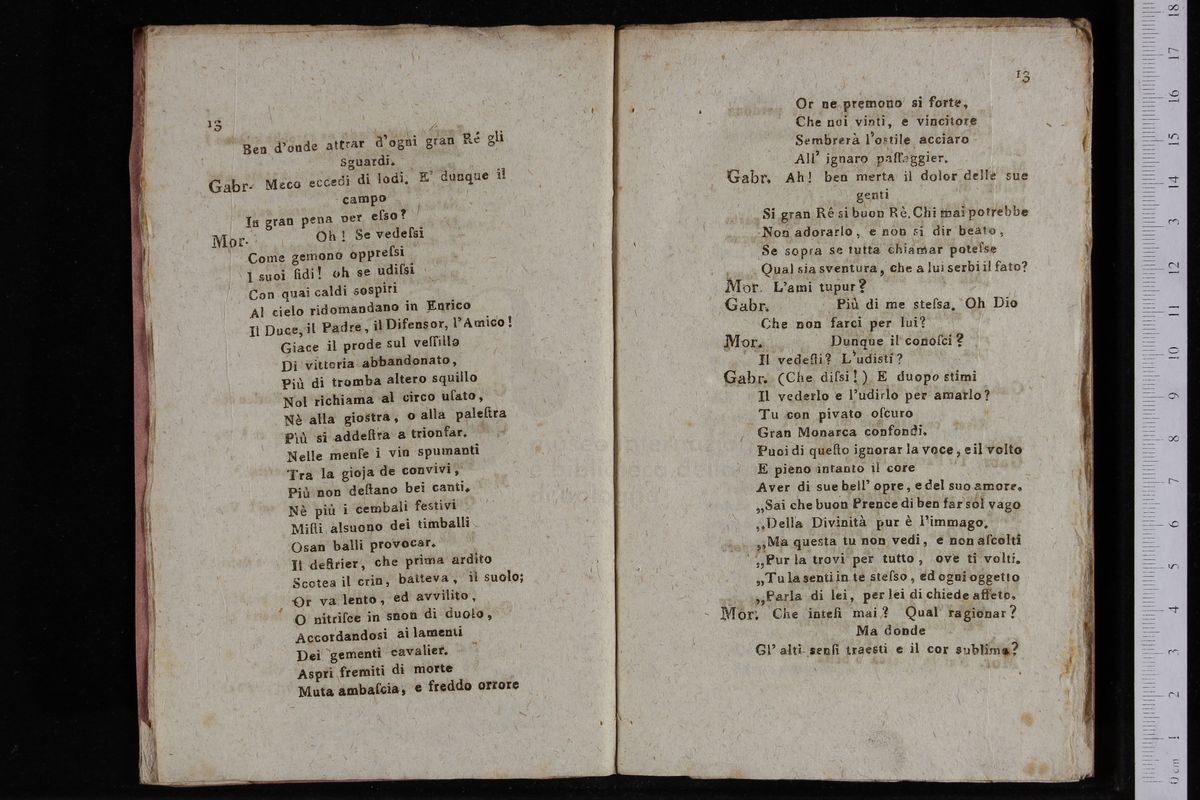 13
Ben d'onde attrar d'ogni gran Ré gli
sguardi.
Gabr. Meco eccedi di lodi. E' dunque il
campo
In gran pena per eſso?
Mor. Oh! Se vedeſsi
Come gemono oppreſsi
I suoi fidi! oh se udiſsi
Con quai caldi sospiri
Al cielo ridomandano in Enrico
Il Duce, il Padre, il Difensor, l'Amico!
Giace il prode sul veſſillo
Di vittoria abbandonato,
Più di tromba altero squillo
Nol richiama al circo uſato,
Nè alla giostra, o alla paleſtra
Più si addeſtra a trionfar.
Nelle menſe i vin spumanti
Tra la gioja de convivi,
Più non deſtano bei canti.
Nè più i cembali festivi
Miſti alsuono dei timballi
Osan balli provocar.
Il deſtrier, che prima ardito
Scotea il crin, batteva, il suolo;
Or va lento, ed avvilito,
O nitriſce in snon di duolo,
Accordandosi ai lamenti
Dei gementi cavalier.
Aspri fremiti di morte
Muta ambaſcia, e freddo orrore
13
Or ne premono si forte,
Che noi vinti, e vincitore
Sembrerà l'ostile acciaro
All' ignaro paſſaggier.
Gabr. Ah! ben merta il dolor delle sue
genti
Si gran Ré si buon Rè. Chi mai potrebbe
Non adorarlo, e non si dir beato,
Se sopra se tutta chiamar poteſse
Qual sia sventura, che a lui serbi il fato?
Mor. L'ami tupur?
Gabr. Più di me steſsa. Oh Dio
Che non farei per lui?
Mor. Dunque il conoſci?
Il vedeſti? L'udisti?
Gabr. (Che diſsi!) E duopo stimi
Il vederlo e l'udirlo per amarlo?
Tu con pivato oſcuro
Gran Monarca confondi.
Puoi di queſto ignorar la voce, e il volto
E pieno intanto il core
Aver di sue bell' opre, e del suo amore.
„Sai che buon Prence di ben far sol vago
„Della Divinità pur è l'immago.
„Ma questa tu non vedi, e non aſcolti
„Pur la trovi per tutto, ove ti volti.
„Tu la senti in te steſso, ed ogni oggetto
„Parla di lei, per lei di chiede affeto.
Mor. Che inteſi mai? Qual ragionar?
Ma donde
Gl' alti senſi traesti e il cor sublime?